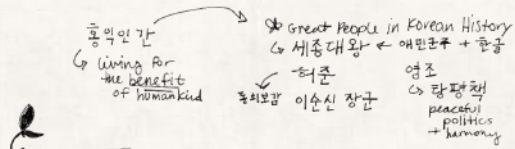 홍익인간
↳ living for
the benefit
of humankind
* Great People in Korean History
↳ 세종대왕 ← 애민군주 + 한글
허준
동의보감
이순신 장군
영조
↳ 탕평책
peaceful
politics
+ harmony